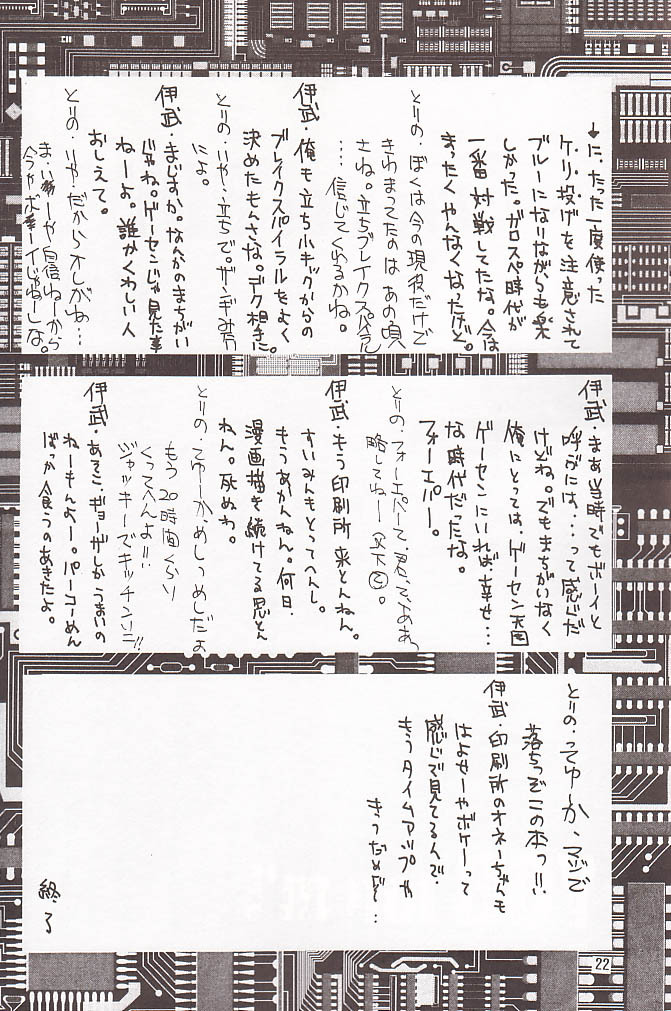 ↓に、たった一度使った
ゲリ投げを注意されて
ブルーになりながらも楽
しかった。ガロスペ時代が
一番対戦してたな。今は
まったくやんなくなったけど。
とりの・ぼくは今の現役だけで
きわまってたのはあの頃
さね。立ちブレイクスパイラル
…信じてくれるかね。
伊武・俺も立ち小キックからの
ブレイクスパイラルをよく
決めたもんさな。デク相手に。
とりの・いや、立ちで。ザンギみ方
によ。
伊武・まじすか。なんかのまちがい
じゃね。ゲーセンじゃ見た事
ねーよ。誰かくわしい人
おしえて。
とりの・いや、だからオレがね…
まぁ、いーや自信ねーから
今やボーイじゃねしな。
伊武・まあ当時でもボーイと
呼ぶには…って感じだ
けどね。でもまちがいなく
俺にとっては、ゲーセン天国
ゲーセンにいれば、幸せ…
な時代だったな。
フォーエバー。
とりの・フォーエバーて、君、てゆああ
略してねー
伊武・もう印刷所来とんねん。
すいみんもとってへんし。
もうあかんねん。何日、
漫画描き続けてる思とん
ねん。死ぬわ。
とりの・てゆーか、めしつめしだよ
もう20時間くらい
くってへんよ!!
ジャッキーでキッチンいこ!!
伊武・あそこ、ギョーザしかうまいの
ねーもんよー。パーコーめん
ばっか食うのあきたよ。
とりの・ってゆーか、マジで
落ちっぞこの本っ!!
伊武・印刷所のオネーちゃんも
はよせーやボケーって
感じで見てるんで、
もうタイムアップや
きっだめど…
終了
22